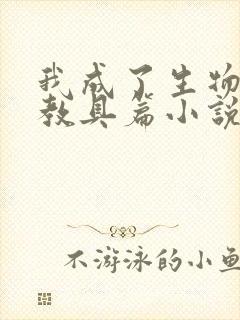 我成了生物
教具篇小说
不游泳的小鱼